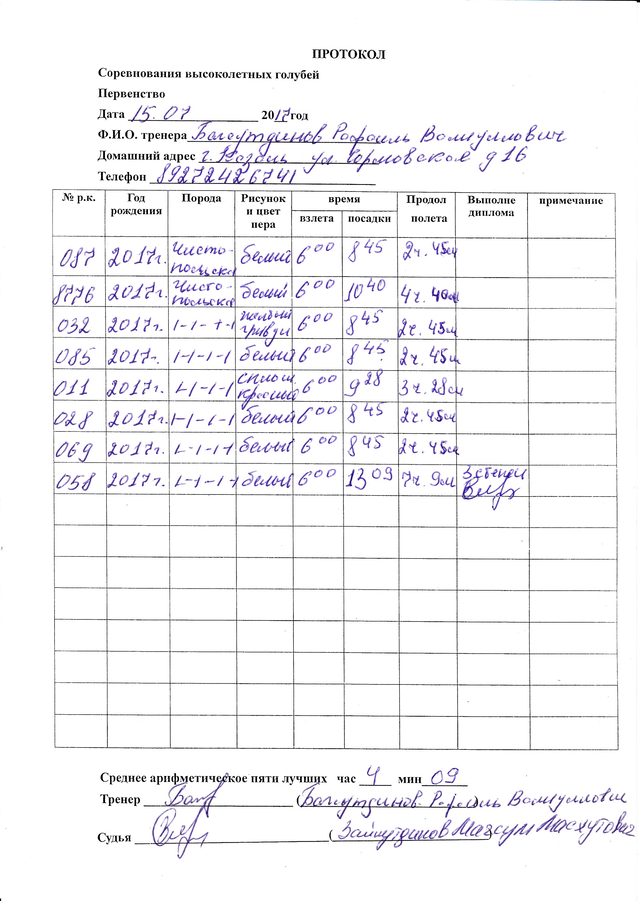 ПРОТОКОЛ
Соревнования высоколетных голубей
Первенство
Дата 15.07 2017год
Ф.И.О. тренера Багаутдинов Рафаиль Валиуллович
Домашний адрес г. Казань ул. д 16
Телефон 89272426741
№ р.к. Год рождения Порода Рисунок и цвет пера время взлета посадки Продол полета Выполне диплома примечание
087 2017г. Чисто-польска белый 6 00 8 45 2ч. 45м
8776 2017г. Чисто-польска белый 6 00 10 40 4ч. 40м
032 2017г. 1-1-1-1 желтый гривун 6 00 8 45 2ч. 45м
085 2017г. 1-1-1-1 белый 6 00 8 45 2ч. 45м
011 2017г. 1-1-1-1 сплош красный 6 00 9 28 3ч. 28м
028 2017г. 1-1-1-1 белый 6 00 8 45 2ч. 45м
069 2017г. 1-1-1-1 белый 6 00 8 45 2ч. 45м
058 2017г. 1-1-1-1 белый 6 00 13 09 7ч. 9м 3 степени
Среднее арифметическое пяти лучших час 4 мин 09
Тренер (Багаутдинов Рафаиль Валиуллович
Судья (Зайнутдинов Магсум Масхутович